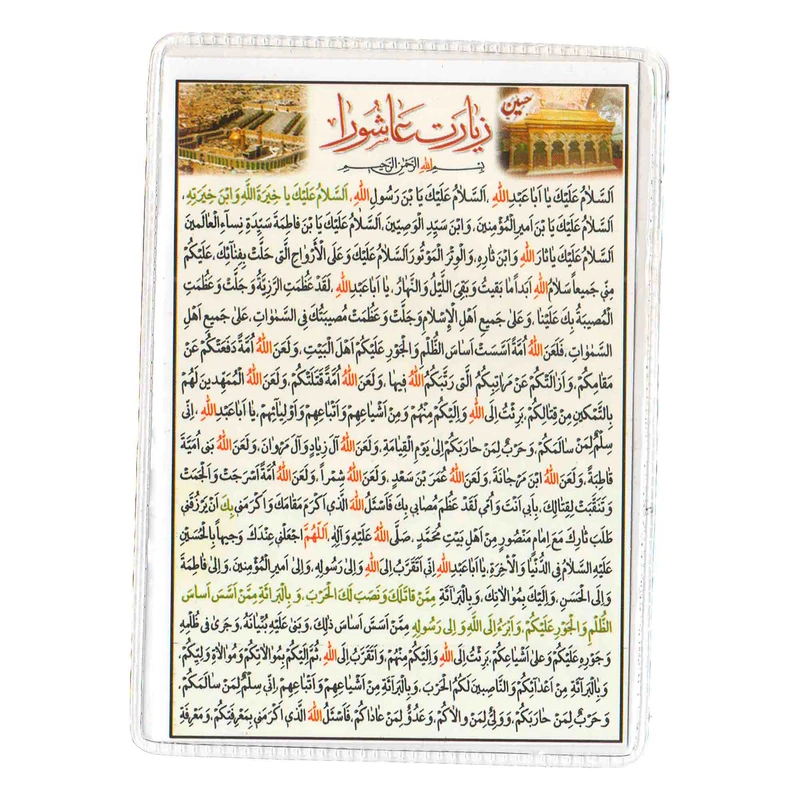 زیارت عاشورا
حسین
بِسْمِ اللهِ الرَّحْمٰنِ الرَّحیمِ
اَلسَّلامُ عَلَيْكَ يا اَبا عَبْدِ اللهِ، اَلسَّلامُ عَلَيْكَ يَا بْنَ رَسُولِ اللهِ، اَلسَّلامُ عَلَيْكَ يا خِيَرَةَ اللَّهِ وَابْنَ خِيَرَتِهِ،
اَلسَّلامُ عَلَيْكَ يَا بْنَ اَميرِ الْمُؤْمِنينَ، وَابْنَ سَيِّدِ الْوَصِيّينَ، اَلسَّلامُ عَلَيْكَ يَا بْنَ فاطِمَةَ سَيِّدَةِ نِسآءِ الْعالَمينَ
اَلسَّلامُ عَلَيْكَ يا ثارَ اللهِ وَابْنَ ثارِهِ، وَالْوِتْرَ الْمَوْتُورَ اَلسَّلامُ عَلَيْكَ وَعَلَى الْأَرْواحِ الَّتى حَلَّتْ بِفِنآئِكَ، عَلَيْكُمْ
مِنّى جَميعاً سَلامُ اللهِ اَبَداً ما بَقيتُ وَبَقِىَ اللَّيْلُ وَالنَّهارُ، يا اَبا عَبْدِ اللهِ، لَقَدْ عَظُمَتِ الرَّزِيَّةُ وَجَلَّتْ وَعَظُمَتِ
الْمُصيبَةُ بِكَ عَلَيْنا، وَعَلى جَميعِ اَهْلِ الْإِسْلامِ وَجَلَّتْ وَعَظُمَتْ مُصيبَتُكَ فِى السَّمٰواتِ، عَلى جَميعِ اَهْلِ
السَّمٰواتِ، فَلَعَنَ اللهُ اُمَّةً اَسَّسَتْ اَساسَ الظُّلْمِ وَالْجَوْرِ عَلَيْكُمْ اَهْلَ الْبَيْتِ، وَلَعَنَ اللهُ اُمَّةً دَفَعَتْكُمْ عَنْ
مَقامِكُمْ، وَاَزالَتْكُمْ عَنْ مَراتِبِكُمُ الَّتى رَتَّبَكُمُ اللهُ فيها، وَلَعَنَ اللهُ اُمَّةً قَتَلَتْكُمْ، وَلَعَنَ اللهُ الْمُمَهِّدينَ لَهُمْ
بِالتَّمْكينِ مِنْ قِتالِكُمْ، بَرِئْتُ اِلَى اللهِ وَاِلَيْكُمْ مِنْهُمْ وَمِنْ اَشْياعِهِمْ وَاَتْباعِهِمْ وَاَوْلِيائِهِمْ، يا اَبا عَبْدِ اللهِ، اِنّى
سِلْمٌ لِمَنْ سالَمَكُمْ، وَحَرْبٌ لِمَنْ حارَبَكُمْ اِلى يَوْمِ الْقِيامَةِ، وَلَعَنَ اللهُ آلَ زِيادٍ وَآلَ مَرْوانَ، وَلَعَنَ اللهُ بَنى اُمَيَّةَ
قاطِبَةً، وَلَعَنَ اللهُ ابْنَ مَرْجانَةَ، وَلَعَنَ اللهُ عُمَرَ بْنَ سَعْدٍ، وَلَعَنَ اللهُ شِمْراً، وَلَعَنَ اللهُ اُمَّةً اَسْرَجَتْ وَاَلْجَمَتْ
وَتَنَقَّبَتْ لِقِتالِكَ، بِاَبى اَنْتَ وَاُمّى لَقَدْ عَظُمَ مُصابى بِكَ فَاَسْئَلُ اللهَ الَّذى اَكْرَمَ مَقامَكَ وَاَكْرَمَنى بِكَ اَنْ يَرْزُقَنى
طَلَبَ ثارِكَ مَعَ اِمامٍ مَنْصُورٍ مِنْ اَهْلِ بَيْتِ مُحَمَّدٍ، صَلَّى اللهُ عَلَيْهِ وَآلِهِ، اَللّٰهُمَّ اجْعَلْنى عِنْدَكَ وَجيهاً بِالْحُسَيْنِ
عَلَيْهِ السَّلامُ فِى الدُّنْيا وَالْأخِرَةِ، يا اَبا عَبْدِ اللهِ اِنّى اَتَقَرَّبُ اِلَى اللهِ وَاِلى رَسُولِهِ، وَاِلى اَميرِ الْمُؤْمِنينَ، وَاِلى فاطِمَةَ
وَاِلَى الْحَسَنِ، وَاِلَيْكَ بِمُوالاتِكَ، وَبِالْبَرائَةِ مِمَّنْ قاتَلَكَ وَنَصَبَ لَكَ الْحَرْبَ، وَبِالْبَرائَةِ مِمَّنْ اَسَّسَ اَساسَ
الظُّلْمِ وَالْجَوْرِ عَلَيْكُمْ، وَاَبْرَءُ اِلَى اللَّهِ وَاِلى رَسُولِهِ مِمَّنْ اَسَّسَ اَساسَ ذلِكَ، وَبَنى عَلَيْهِ بُنْيانَهُ، وَجَرى فى ظُلْمِهِ
وَجَوْرِهِ عَلَيْكُمْ وَعَلى اَشْياعِكُمْ، بَرِئْتُ اِلَى اللهِ وَاِلَيْكُمْ مِنْهُمْ وَاَتَقَرَّبُ اِلَى اللهِ، ثُمَّ اِلَيْكُمْ بِمُوالاتِكُمْ وَمُوالاةِ وَلِيِّكُمْ،
وَبِالْبَرائَةِ مِنْ اَعْدآئِكُمْ وَالنّاصِبينَ لَكُمُ الْحَرْبَ، وَبِالْبَرائَةِ مِنْ اَشْياعِهِمْ وَاَتْباعِهِمْ، اِنّى سِلْمٌ لِمَنْ سالَمَكُمْ،
وَحَرْبٌ لِمَنْ حارَبَكُمْ، وَوَلِىٌّ لِمَنْ والاكُمْ، وَعَدُوٌّ لِمَنْ عاداكُمْ، فَاَسْئَلُ اللهَ الَّذى اَكْرَمَنى بِمَعْرِفَتِكُمْ، وَمَعْرِفَةِ